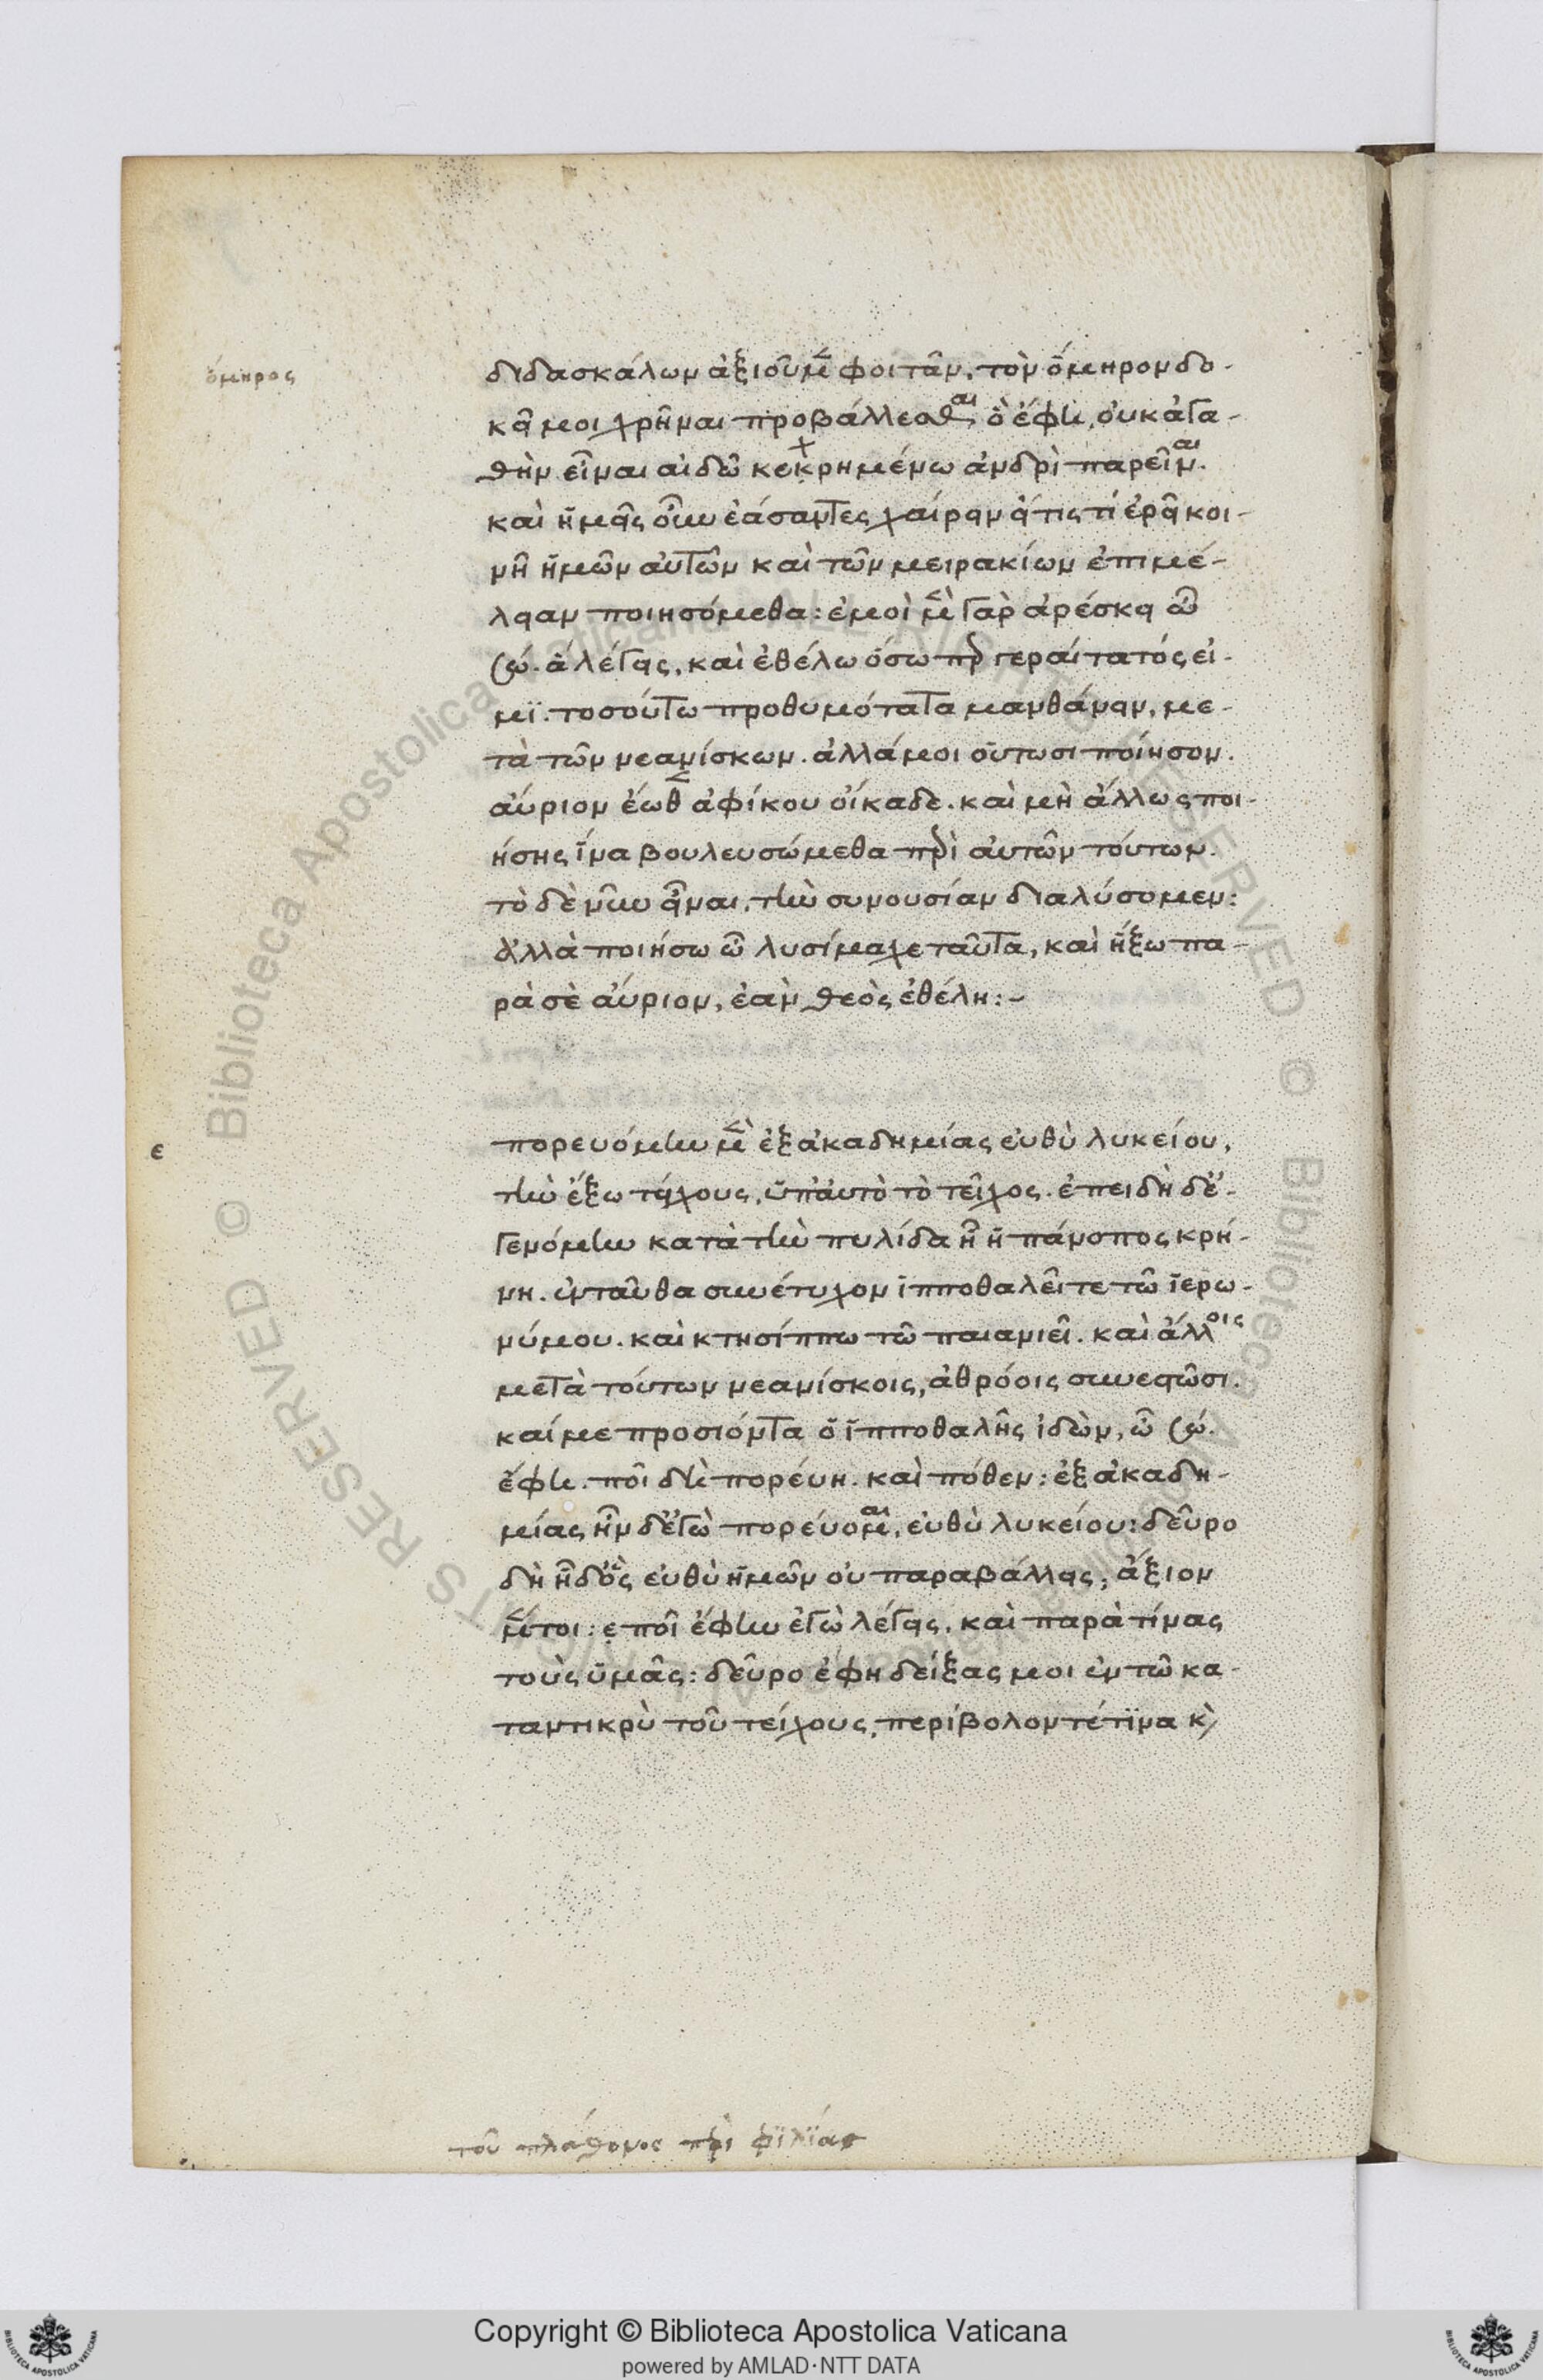 ὅμηρος
διδασκάλων ἀξιοῦμεν φοιτᾶν, τὸν ὅμηρον δο-
κεῖ μοι χρῆναι προβάλλεσθαι, ὃ ἔφη, οὐκ ἀγα-
θὴν εἶναι αἰδῶ κεκρημένω ἀνδρὶ παρεῖναι.
καὶ ἡμεῖς οὖν ἐάσαντες χαίρειν εἴ τις τί ἐρεῖ κοι-
νῆ ἡμῶν αὐτῶν καὶ τῶν μειρακίων ἐπιμέ-
λειαν ποιησόμεθα: ἐμοὶ μὲν γὰρ ἀρέσκει ὦ
σώ. ἃ λέγεις, καὶ ἐθέλω ὅσω περ γεραίτατός εἰ-
μϊ. τοσούτω προθυμότατα μανθάνειν, με-
τὰ τῶν νεανίσκων. ἀλλά μοι οὕτωσι ποίησον.
αὔριον ἕωθεν ἀφίκου οἴκαδε. καὶ μὴ ἄλλως ποι-
ήσης ἵνα βουλευσώμεθα περὶ αὐτῶν τούτων.
τὸ δὲ νῦν εἶναι, τὴν συνουσίαν διαλύσομεν:
ἀλλὰ ποιήσω ὦ λυσίμαχε ταῦτα, καὶ ἥξω πα-
ρὰ σὲ αὔριον, ἐὰν θεὸς ἐθέλη:-
ε
πορευόμην μὲν ἐξ ἀκαδημίας εὐθὺ λυκείου,
τὴν ἔξω τείχους, ὑπ' αὐτὸ τὸ τεῖχος. ἐπειδὴ δ' ἐ-
γενόμην κατὰ τὴν πυλίδα ἧ ἡ πάνοπος κρή-
νη. ἐνταῦθα συνέτυχον ἱπποθαλεῖ τε τῶ ἱερω-
νύμου. καὶ κτησίππω τῶ παιανιεῖ. καὶ ἄλλοις
μετὰ τούτων νεανίσκοις, ἀθρόοις συνεστῶσι.
καί με προσιόντα ὁ ἱπποθαλῆς ἰδὼν, ὦ σώ.
ἔφη. ποῖ δὴ πορεύη. καὶ πόθεν: ἐξ ἀκαδη-
μίας ἦν δ' ἐγὼ πορεύομαι, εὐθὺ λυκείου: δεῦρο
δὴ ἦ δ' ὃς εὐθὺ ἡμῶν οὐ παραβάλλεις; ἄξιον
μέντοι: ποῖ ἔφην ἐγὼ λέγεις, καὶ παρὰ τίνας
τοὺς ὑμᾶς: δεῦρο ἔφη δείξας μοι ἐν τῶ κα-
ταντικρὺ τοῦ τείχους, περίβολον τέ τϊνα κὶ
τοῦ πλάτωνος περι φϊλϊάς